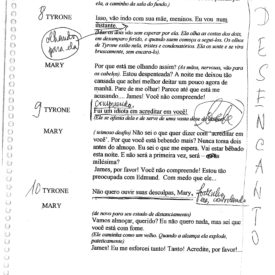 ela, a caminho da sala do fundo.)
8 TYRONE
Isso, vão indo com sua mãe, meninos. Eu vou num
instante.
olhando
para ela
(Mas os dois vão sem esperar por ela. Ela olha as costas dos dois,
em desamparo ferido, e quando somem começa a segui-los. Os olhos
de Tyrone estão nela, tristes e condenatórios. Ela os sente e se vira
bruscamente, sem encará-lo).
MARY
Por que está me olhando assim? (As mãos, nervosas, vão para
os cabelos). Estou despenteada? A noite me deixou tão
cansada que achei melhor deitar um pouco agora de
manhã. Pare de me olhar! Parece até que está me
acusando.... James! Você não compreende!
9 TYRONE
Fui um idiota em acreditar em você!
(Ele se afasta dela e se serve de uma
MARY
(teimoso desafio) Não sei o que quer dizer com "acreditar em
você". Por que você está bebendo mais? Nunca toma dois
antes do almoço. Eu sei o que me espera. Vai estar bêbado
esta noite. E não será a primeira vez, será -
milésima?
James, por favor! Você não compreende! Estou tão
preocupada com Edmund. Com medo que ele...
10 TYRONE
Não quero ouvir suas desculpas, Mary,
MARY
(de novo para seu estado de distanciamento)
Vamos almoçar, querido? Eu não quero nada, mas sei que
você está com fome.
(Ele caminha como um velho. Quando a alcança ela explode,
pateticamente)
James! Eu me esforcei tanto! Tanto! Acredite, por favor!...
DESENCANTO